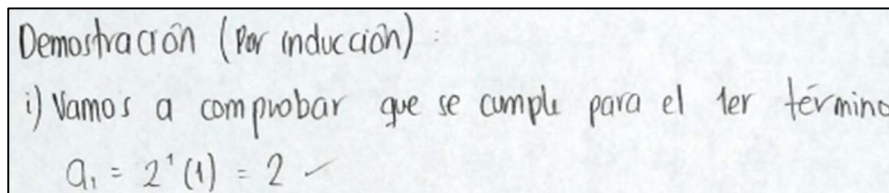 Demostración (Por inducción):
i) Vamos a comprobar que se cumple para el 1er término
a₁ = 2¹ (1) = 2 ✓